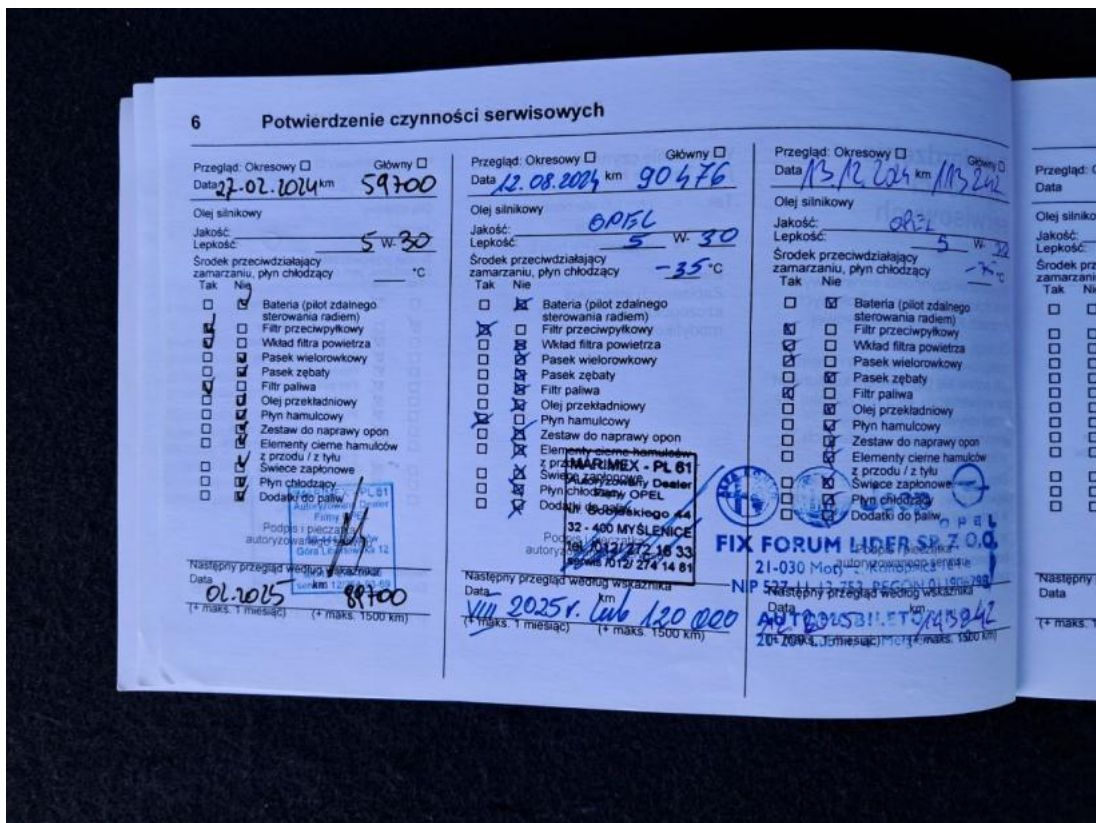 6 Potwierdzenie czynności serwisowych
Przegląd: Okresowy Główny
Data 27.02.2024 km 59700
Olej silnikowy
Jakość:
Lepkość: 5 W- 30
Środek przeciwdziałający
zamarzaniu, płyn chłodzący °C
Tak Nie
Bateria (pilot zdalnego
sterowania radiem)
Filtr przeciwpyłkowy
Wkład filtra powietrza
Pasek wielorowkowy
Pasek zębaty
Filtr paliwa
Olej przekładniowy
Płyn hamulcowy
Zestaw do naprawy opon
Elementy cierne hamulców
z przodu / z tyłu
Świece zapłonowe
Płyn chłodzący
Dodatki do paliw
MARIMEX - PL 61
Autoryzowany Dealer
Firmy OPEL
Podpis i pieczątka
autoryzowanego
Następny przegląd według wskaźnika
Data km
02.2025 89700
(+ maks. 1 miesiąc) (+ maks. 1500 km)
Przegląd: Okresowy Główny
Data 12.08.2024 km 90476
Olej silnikowy
Jakość: OPEL
Lepkość: 5 W- 30
Środek przeciwdziałający
zamarzaniu, płyn chłodzący -35 °C
Tak Nie
Bateria (pilot zdalnego
sterowania radiem)
Filtr przeciwpyłkowy
Wkład filtra powietrza
Pasek wielorowkowy
Pasek zębaty
Filtr paliwa
Olej przekładniowy
Płyn hamulcowy
Zestaw do naprawy opon
Elementy cierne hamulców
Świece zapłonowe
Płyn chłodzący
Dodatki do paliw
MARIMEX - PL 61
Autoryzowany Dealer
Firmy OPEL
32 - 400 MYŚLENICE
tel. /012/ 272 16 33
serwis /012/ 274 14 81
Następny przegląd według wskaźnika
Data km
VIII 2025 r. lub 120 000
(+ maks. 1 miesiąc) (+ maks. 1500 km)
Przegląd: Okresowy Główny
Data 13.12.2024 km 113 842
Olej silnikowy
Jakość: OPEL
Lepkość: 5 W- 30
Środek przeciwdziałający
zamarzaniu, płyn chłodzący °C
Tak Nie
Bateria (pilot zdalnego
sterowania radiem)
Filtr przeciwpyłkowy
Wkład filtra powietrza
Pasek wielorowkowy
Pasek zębaty
Filtr paliwa
Olej przekładniowy
Płyn hamulcowy
Zestaw do naprawy opon
Elementy cierne hamulców
z przodu / z tyłu
Świece zapłonowe
Płyn chłodzący
Dodatki do paliw
OPEL
FIX FORUM LIDER SP. Z O.O.
21-030
Następny przegląd według wskaźnika
Data km
143842
(+ maks. 1500 km)
Przegląd:
Data
Olej
Jakość:
Lepkość:
Środek
Tak
Następny
Data
(+ maks.